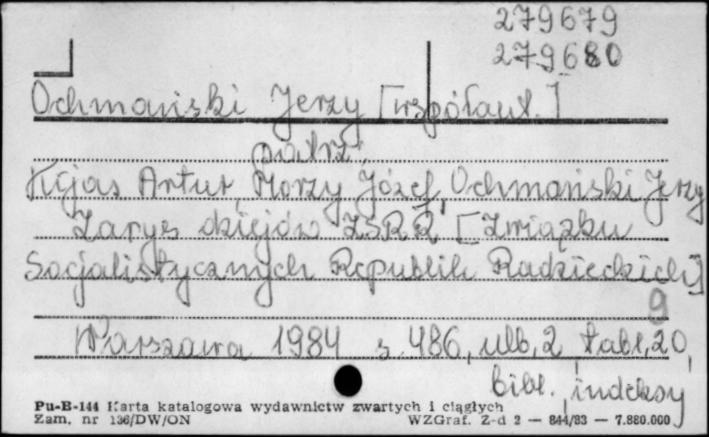 279679
279680
Ochmański Jerzy [współaut.]
patrz:
Kijas Artur, Morzy Józef, Ochmański Jerzy
Zarys dziejów ZSRR [Związku
Socjalistycznych Republik Radzieckich]
9
Warszawa 1984 s. 486, nlb, 2 tabl, 20,
bibl. indeksy
Pu-B-144 Karta katalogowa wydawnictw zwartych i ciągłych
Zam. nr 136/DW/ON WZGraf. Z-d 2 — 844/83 — 7.880.000